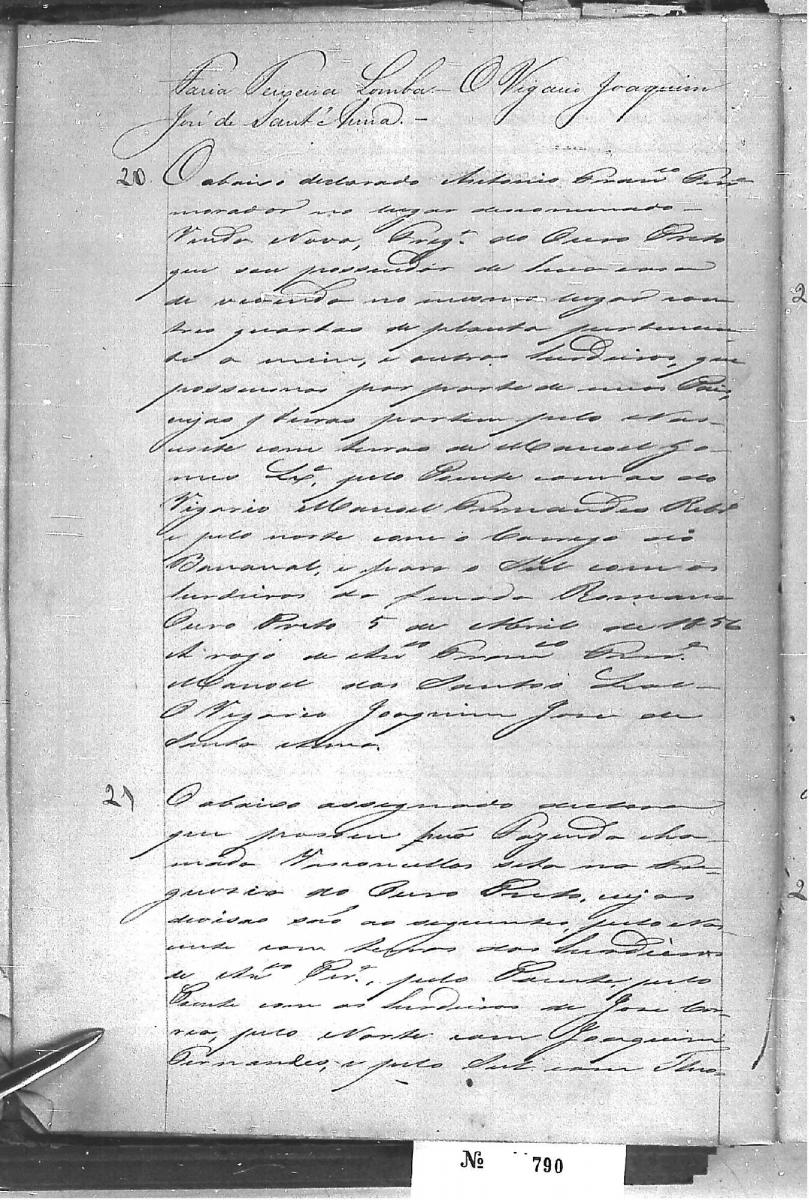 Faria Teixeira Lomba.- O Vigario Joaquim
José de Sant'Anna.-
20. O abaixo declarado Antonio Franco Ferra
morador no lugar denominado-
Venda Nova, Fregª do Ouro Preto
que sou possuidor de huma casa
de vivenda no mesmo lugar com
tres quartas de planta pertencen
te a mim, e outros herdeiros, que
possuimos por parte de meus Pais,
cujas terras partem pelo Nas-
cente com terras de Manoel Go-
mes pelo Poente com as do
Vigario Manoel Fernandes Ribº
e pelo norte com o Corrego do
Bananal, e para o Sul com os
herdeiros da finada Romana
Ouro Preto 5 de Abril de 1856
A rogo de Antº Franco Ferrª
Manoel dos Santos Leal-
O Vigario Joaquim José de
Santa Anna.
21 O abaixo assegnado declara
que possue Fazenda cha-
mada Vasconcellos seta na Fre-
guesia do Ouro Preto, cujas
devisas são as seguintes, pelo Nas
cente com terras dos herdeiros
de Antº Perª, pelo Poente, pelo
Poente com os herdeiros de José Cor-
rea, pelo Norte com Joaquim
Fernandes, e pelo Sul com
Nº 790